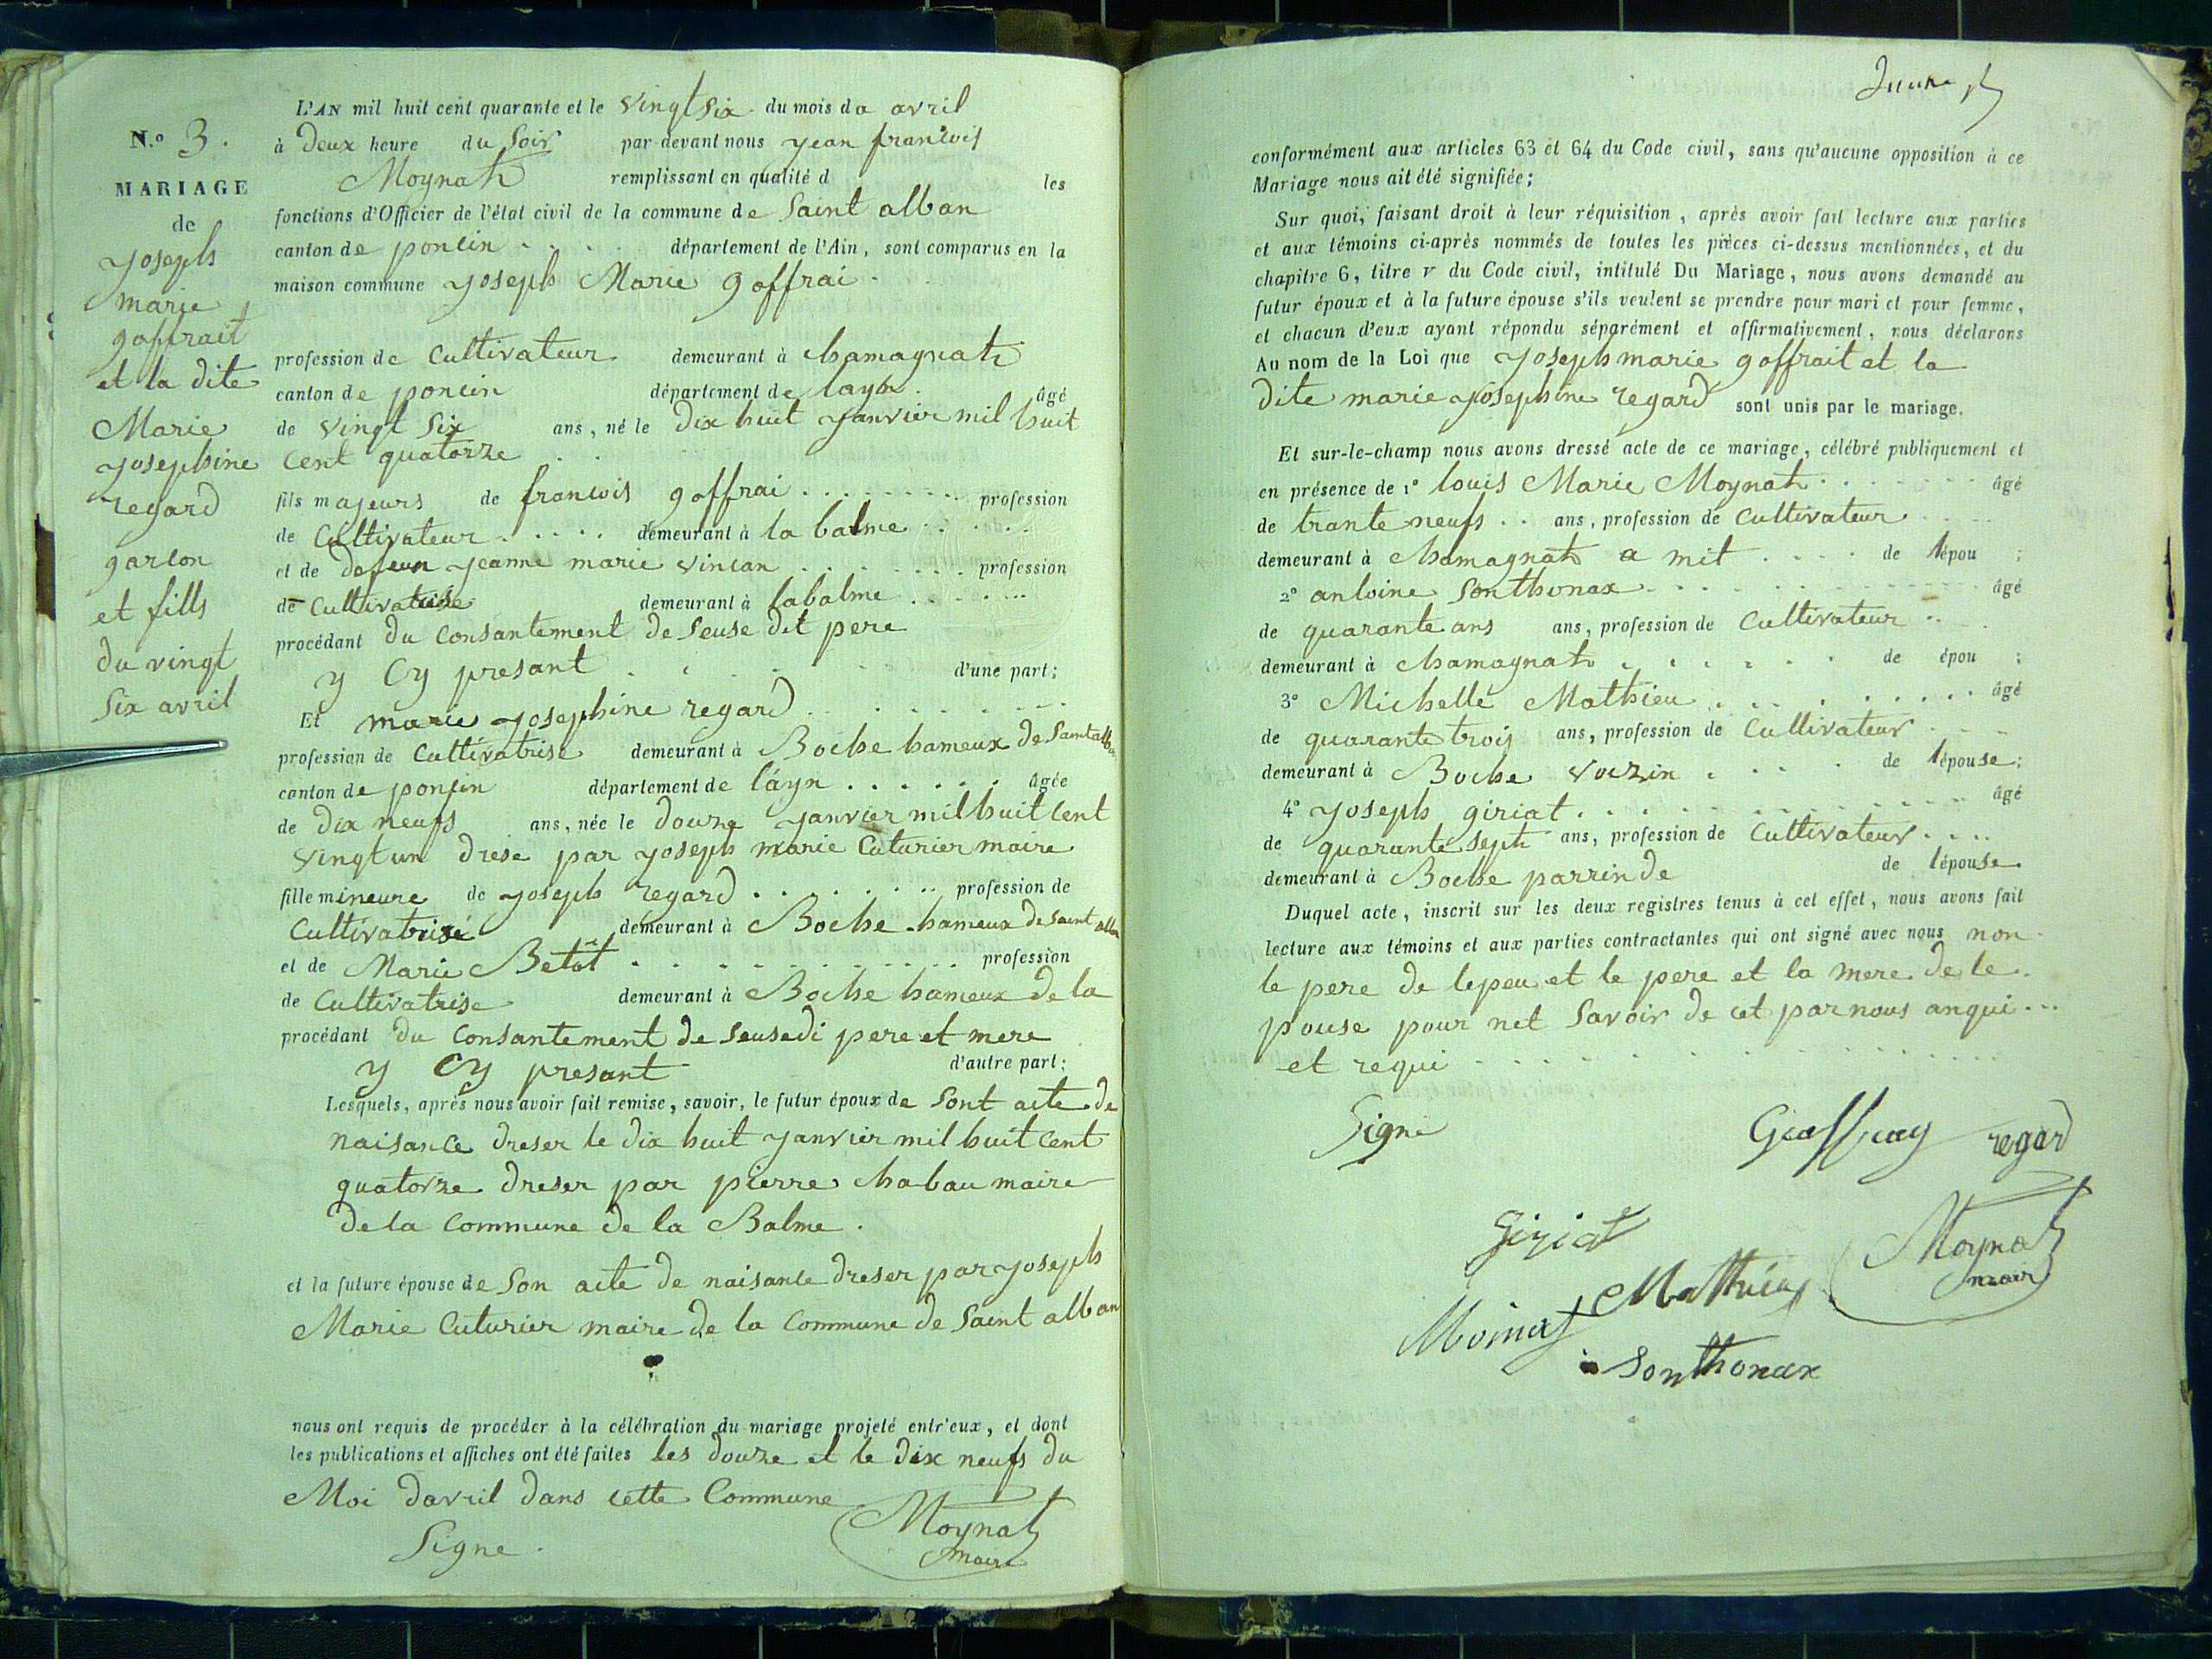 N.o 3.
MARIAGE
de
yoseph
marie
goffrait
et la dite
Marie
yosephine
regard
garcon
et fills
du vingt
six avril
L'AN mil huit cent quarante et le vingt six du mois da avril
à deux heure du soir par devant nous yean francois
Moynat remplissant en qualité d les
fonctions d'Officier de l'état civil de la commune de Saint alban
canton de poncin département de l'Ain, sont comparus en la
maison commune yoseph Marie goffrai
profession de Cultivateur demeurant à chamagnat
canton de poncin département de layn âgé
de vingt six ans, né le dix huit yanvier mil huit
cent quatorze
fils majeurs de francois goffrai profession
de Cultivateur demeurant à la balme
et de defeun yeanne marie vincan profession
de Cultivatrise demeurant à labalme
procédant du consantement de seuse dit pere
y Cy presant d'une part;
Et marie yosephine regard
profession de Cultivatrise demeurant à Boche hameux de Saint alban
canton de poncin département de layn âgée
de dix neufs ans, née le douze yanvier mil huit cent
vingt un drese par yoseph marie Cuturier maire
fille mineure de yoseph regard profession de
Cultivatrise demeurant à Boche hameux de saint alban
et de Marie Betot profession
de Cultivatrise demeurant à Boche hameux de la
procédant du Consantement de seusedi pere et mere
y Cy presant d'autre part;
Lesquels, après nous avoir fait remise, savoir, le futur époux de Sont acte de
naisance dreser le dix huit yanvier mil huit cent
quatorze dreser par pierre chabau maire
de la commune de la Balme.
et la future épouse de Son acte de naisance dreser par yoseph
Marie Cuturier maire de la Commune de Saint alban
nous ont requis de procéder à la célébration du mariage projeté entr'eux, et dont
les publications et affiches ont été faites les douze et le dix neufs du
Moi davril dans cette Commune
Signe. Moynat
maire
conformément aux articles 63 et 64 du Code civil, sans qu'aucune opposition à ce
Mariage nous ait été signifiée;
Sur quoi, faisant droit à leur réquisition, après avoir fait lecture aux parties
et aux témoins ci-après nommés de toutes les pièces ci-dessus mentionnées, et du
chapitre 6, titre v du Code civil, intitulé Du Mariage, nous avons demandé au
futur époux et à la future épouse s'ils veulent se prendre pour mari et pour femme,
et chacun d'eux ayant répondu séparément et affirmativement, nous déclarons
Au nom de la Loi que yoseph marie goffrait et la
dite marie yosephine regard sont unis par le mariage.
Et sur-le-champ nous avons dressé acte de ce mariage, célébré publiquement et
en présence de 1° louis Marie Moynat âgé
de trante neufs ans, profession de Cultivateur
demeurant à chamagnat a mit de lépou ;
2° antoine Sonthonax âgé
de quarante ans ans, profession de Cultivateur
demeurant à chamagnat de épou ;
3° Michelle Mathieu âgé
de quarante trois ans, profession de Cultivateur
demeurant à Boche voizin de lépouse;
4° yoseph giriat âgé
de quarante sept ans, profession de Cultivateur
demeurant à Boche parrin de de lépouse
Duquel acte, inscrit sur les deux registres tenus à cet effet, nous avons fait
lecture aux témoins et aux parties contractantes qui ont signé avec nous non
le pere de lepeu et le pere et la mere de le
pouse pour net Savoir de cet par nous anqui
et requi
Signe Geoffray regard
Giriat Moynat
maire
Moinat Mathieu
Sonthonax